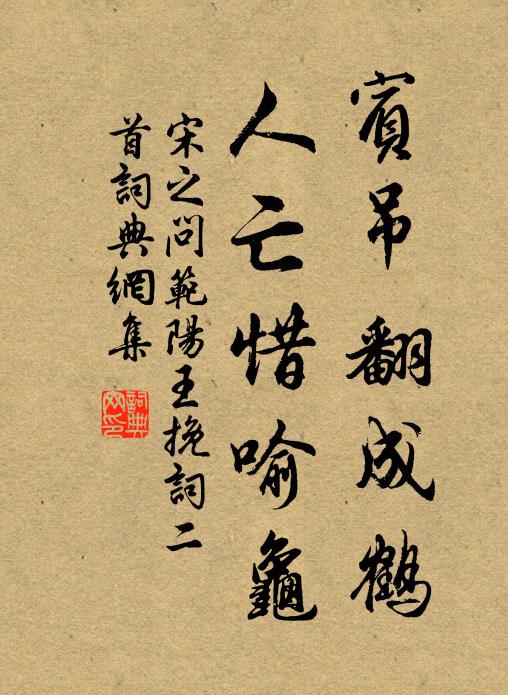 賓吊翻成鶴
人亡惜喻龜
宋之問範陽王挽詞二
首詞典網集
詞典
网印